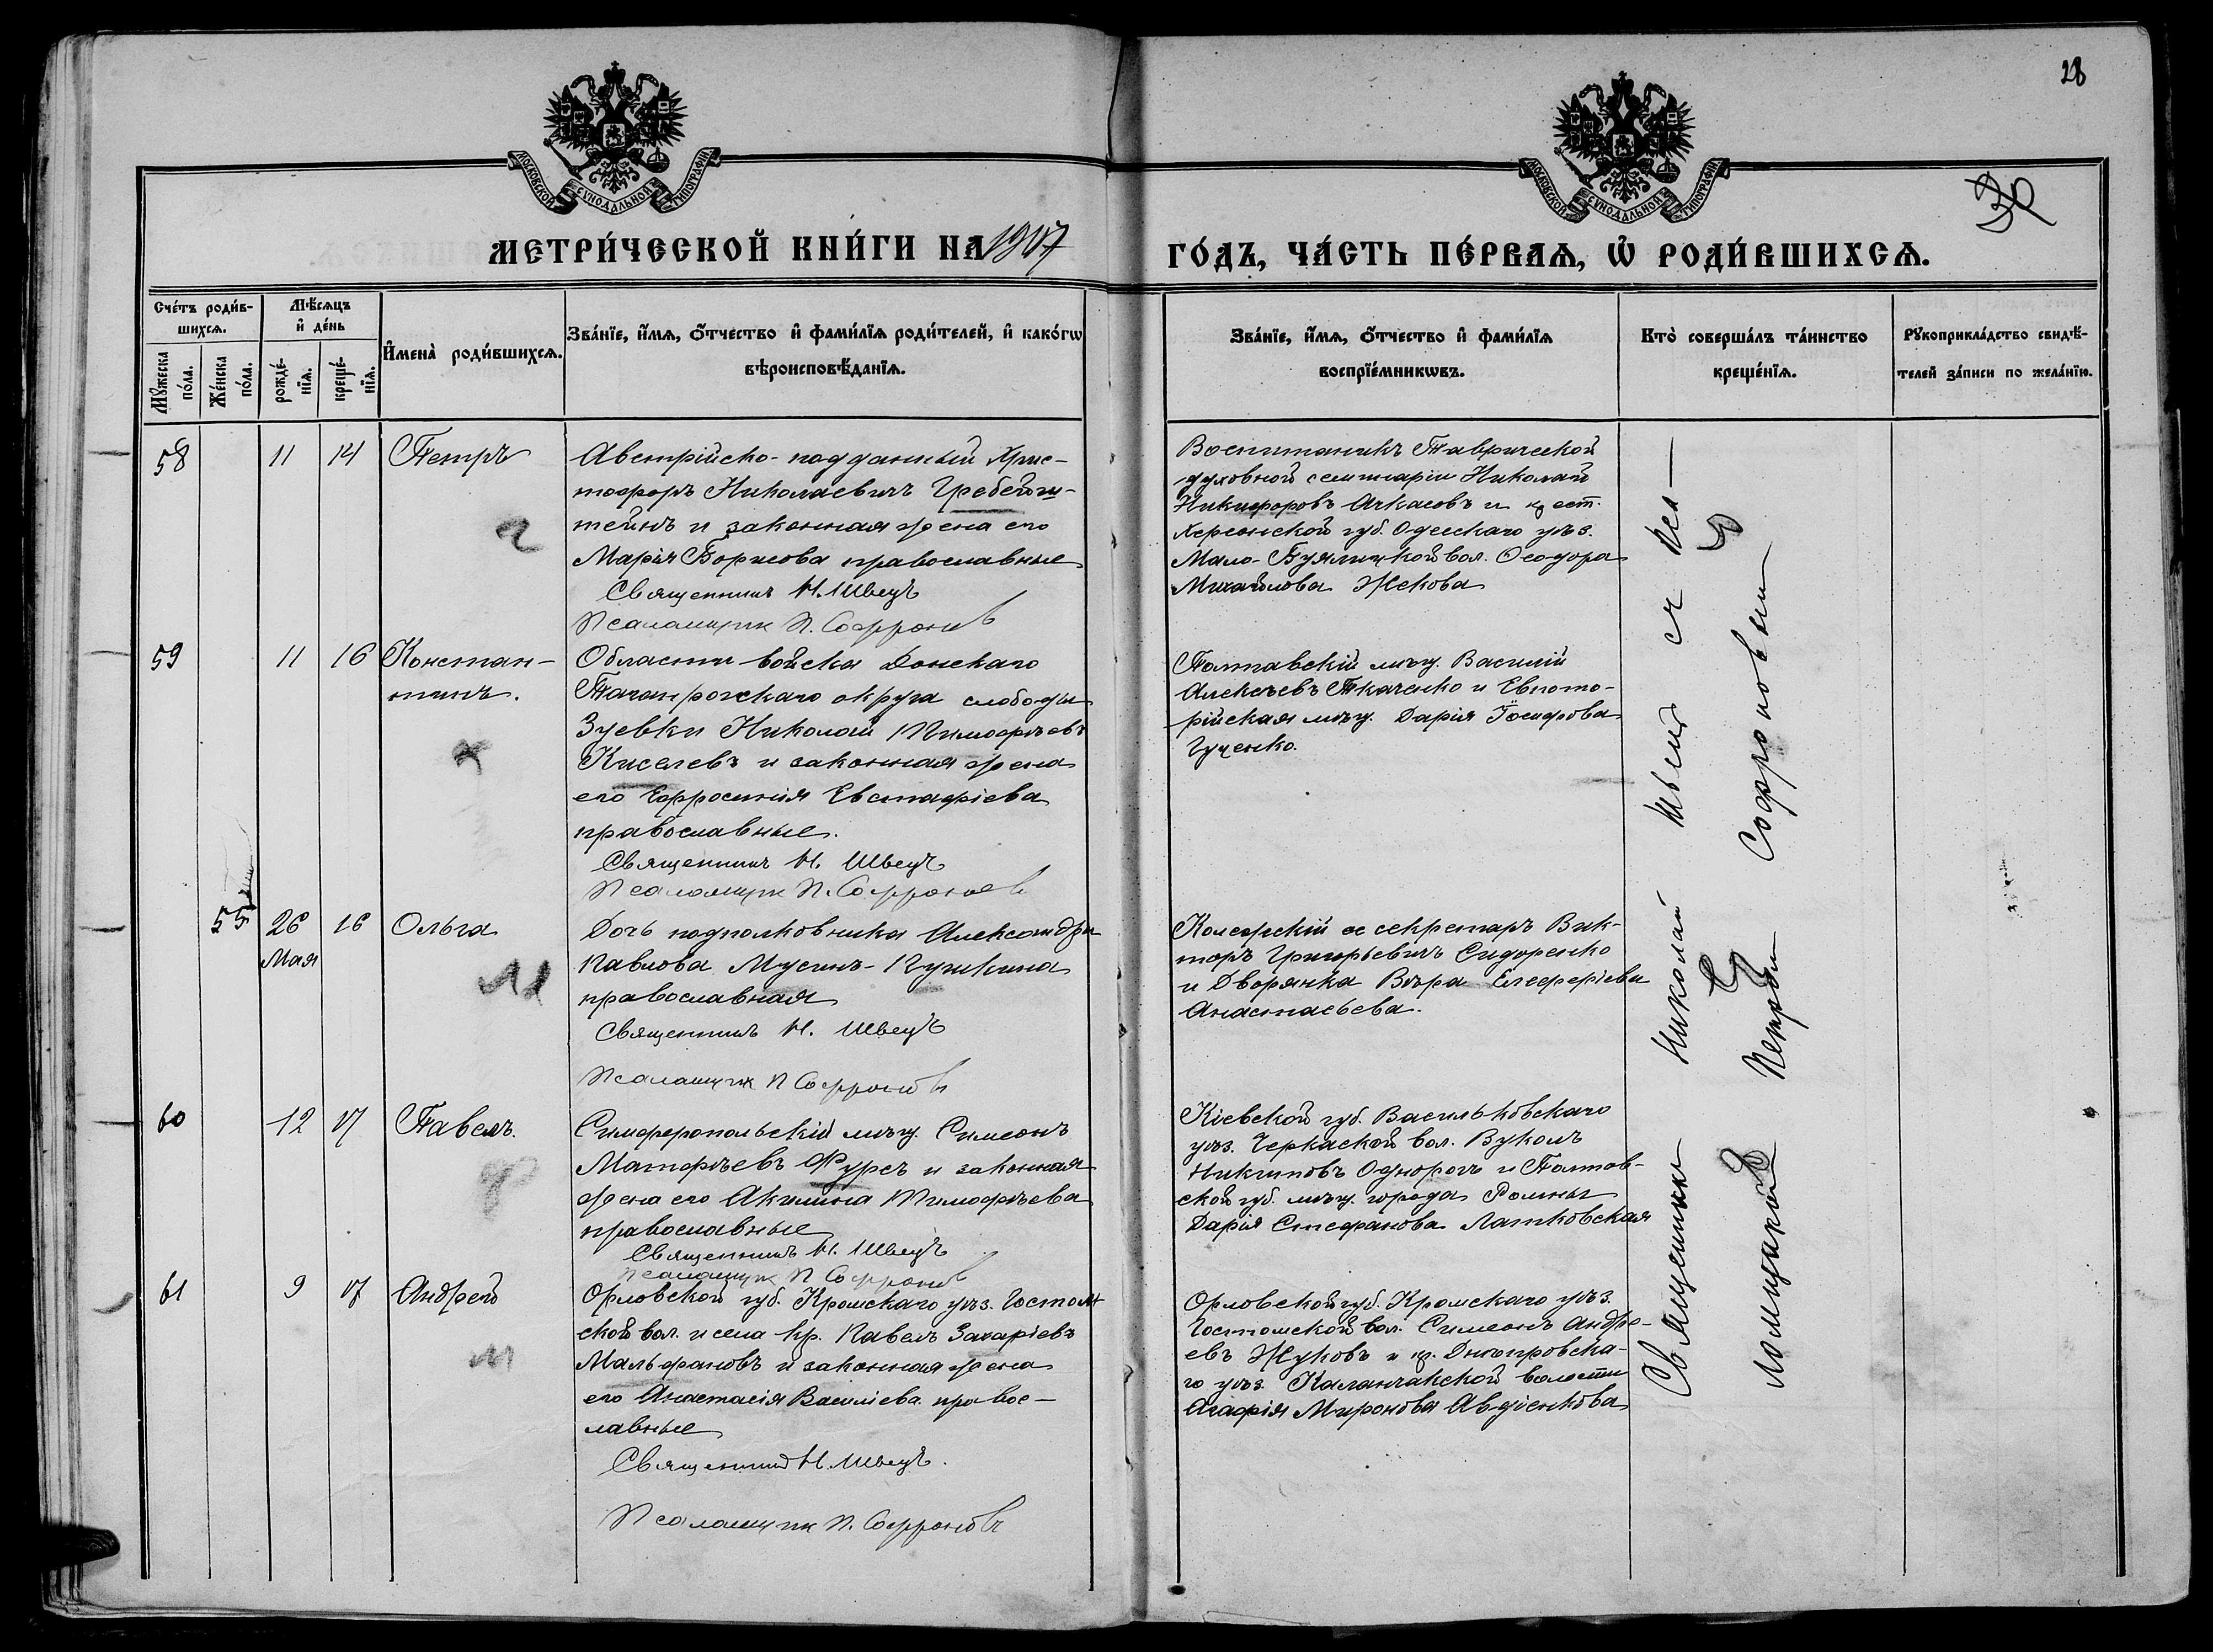 28
МОСКОВСКОЙ СУНОДАЛЬНОЙ ТИПОГРАФІИ
МОСКОВСКОЙ СУНОДАЛЬНОЙ ТИПОГРАФІИ
МЕТРИ́ЧЕСКОЙ КНИ́ГИ НА 1907
ГО́ДЪ, ЧА́СТЬ ПЕ́РВАѦ, Ѡ҆ РОДИ́ВШИХСѦ.
Сче́тъ роди́в-
шихсѧ.
Мѣ́сѧцъ
и҆ де́нь
Мꙋ́жеска
по́ла.
Же́нска
по́ла.
рожде́-
нїѧ.
креще́-
нїѧ.
И҆мена̀ роди́вшихсѧ.
Зва́нїе, и҆́мѧ, ѻ҆́тчество и҆ фами́лїѧ роди́телей, и҆ како́гѡ
вѣроисповѣ́данїѧ.
Зва́нїе, и҆́мѧ, ѻ҆́тчество и҆ фами́лїѧ
воспрїе́мникѡвъ.
Кто̀ соверша́лъ та́инство
креще́нїѧ.
Рꙋкоприкла́дство свидѣ́-
телей за́писи по жела́нїю.
58 11 14 Петръ
Австрійско-подданный Хрис-
тофоръ Николаевичъ Гребенш-
тейнъ и законная жена его
Марія Борисова православные
Священникъ Н. Швецъ
Псаломщик П. Софронов
Воспитаникъ Таврической
духовной семинаріи Николай
Никифоровъ Ачкасовъ и крест.
Херсонской губ. Одесскаго уѣз.
Мало-Буялицкой вол. Ѳеодора
Михайлова Жекова
59 11 16 Констан-
тинъ.
Области войска Донскаго
Таганрогскаго округа слободы
Зуевки Николай Тимофѣевъ
Киселевъ и законная жена
его Ефросинія Евстафіева
православные.
Священникъ Н. Швецъ
Псаломщик П. Софронов
Полтавскій мѣщ. Василій
Алексѣевъ Ткаченко и Евпато-
рійская мѣщ. Дарія Іосифова
Гученко.
55 26 16 Ольга
Мая
Дочь подполковника Александра
Павлова Мусинъ-Пушкина
православная
Священникъ Н. Швецъ
Псаломщик П Софронов
Колежскій секретарь Вик-
торъ Григорьевичъ Сидоренко
и Дворянка Вѣра Елефѳріева
Анастасьева.
60 12 17 Павелъ.
Симферопольскій мѣщ. Симеонъ
Матфѣевъ Фурсъ и законная
жена его Акилина Тимофѣева
православные
Священникъ Н. Швецъ
Псаломщик П Софронов
Кіевской губ. Васильковскаго
уѣз. Черкаской вол. Вуколъ
Никитовъ Однорогъ и Полтав-
ской губ. мѣщ. города Ромны
Дарія Стефанова Латковская
61 9 17 Андрей
Орловской губ. Кромскаго уѣз. Гостом
ской вол. и села кр. Павелъ Захаріевъ
Мальфановъ и законная жена
его Анастасія Василіева правос-
лавные
Священникъ Н. Швецъ.
Псаломщик П. Софроновъ
Орловской губ. Кромскаго уѣз.
Гостомской вол. Симеонъ Андре-
евъ Жуковъ и кр. Днѣпровска-
го уѣз. Каланчакской волости
Агафія Миронова Авдіенкова
Священникъ Николай Швецъ съ Пса-
ломщикомъ Петромъ Софроновым